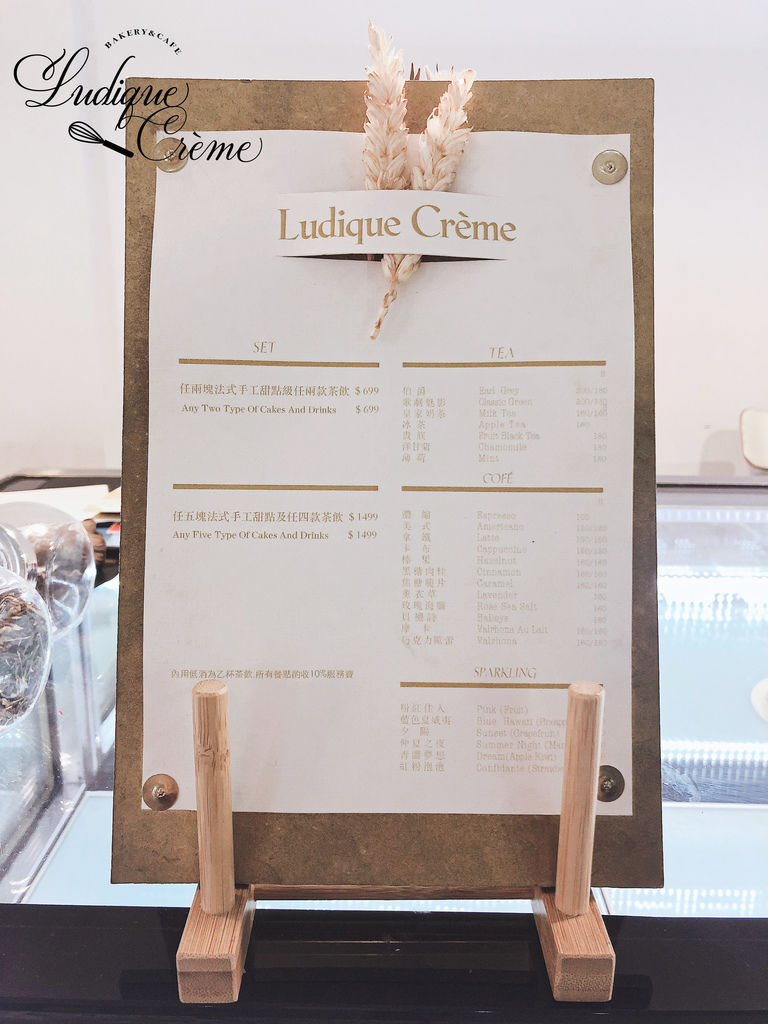 BAKERY&CAFE
Ludique
Crème
Ludique Crème
SET
任兩塊法式手工甜點級任兩款茶飲 $ 699
Any Two Type Of Cakes And Drinks $ 699
任五塊法式手工甜點及任四款茶飲 $ 1499
Any Five Type Of Cakes And Drinks $ 1499
內用低消為乙杯茶飲,所有餐點酌收10%服務費
TEA
伯 爵 Earl Grey
歌劇魅影 Classic Green
皇家奶茶 Milk Tea
冰 茶 Apple Tea
貴 族 Fruit Black Tea 180
洋甘菊 Chamomile 180
薄 荷 Mint 180
COFÉ
濃 縮 Espresso
美 式 Americano
拿 鐵 Latte
卡 布 Cappuccino
榛 果 Hazelnut
黑糖肉桂 Cinnamon
焦糖脆片 Caramel
薰衣草 Lavender
玫瑰海鹽 Rose Sea Salt
貝禮詩 Baileys
摩 卡 Valrhona Au Lait
巧克力歐蕾 Valrhona
SPARKLING
粉紅佳人 Pink (Fruit)
藍色夏威夷 Blue Hawaii
夕 陽 Sunset (Grapefruit)
仲夏之夜 Summer Night
青蘋夢想 Dream(Apple Kiwi)
紅粉泡泡 Confidante